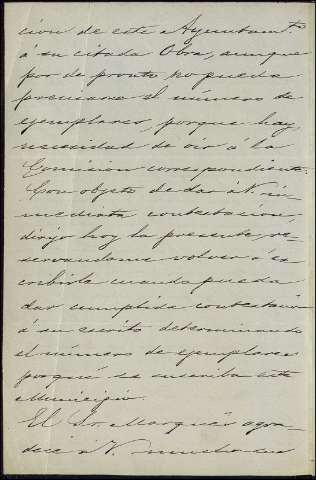 ción de este Ayuntamto
á su citada Obra, aunque
por de pronto no pueda
precisarse el número de
ejemplares, porque hay
necesidad de oir á la
Comision correspondiente.
Con objeto de dar á V. in-
mediata contestacion,
dirijo hoy la presente, re-
servandome volver á es-
cribirle cuando pueda
dar cumplida contestacion
á su escrito determinando
el número de ejemplares
porque se suscriba este
Municipio.
El Sr. Marqués agra-
dece á V. mucho sus